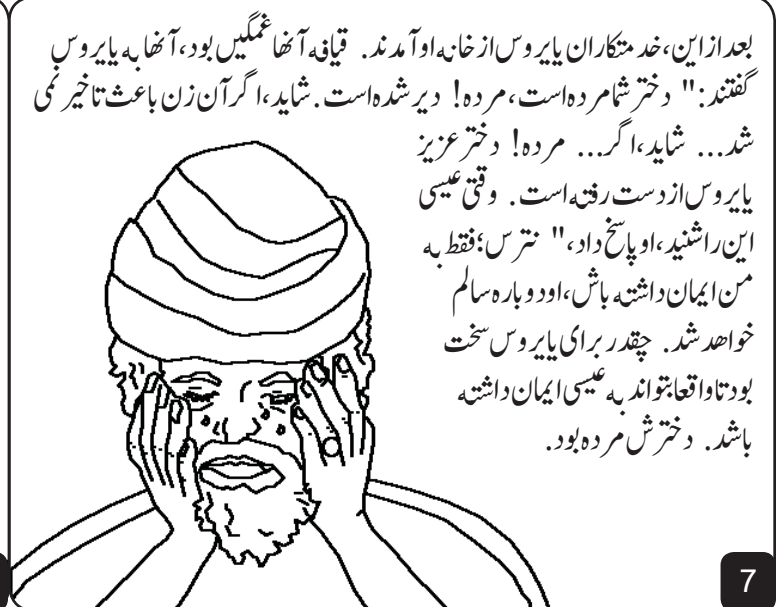 بعدازاین،خدمتکاران یایروس ازخانه اوآمدند. قیافه آنها غمگیں بود،آنها به یایروس
گفتند:" دخترشمامرده است،مرده! دیرشده است.شاید،اگرآن زن باعث تاخیر نمی
شد... شاید،اگر... مرده! دخترعزیز
یایروس ازدست رفته است. وقتی عیسی
این راشنید،اوپاسخ داد،" نترس؛فقط به
من ایمان داشته باش،اودوباره سالم
خواهدشد. چقدربرای یایروس سخت
بودتاواقعابتواند به عیسی ایمان داشته
باشد. دخترش مرده بود.
7